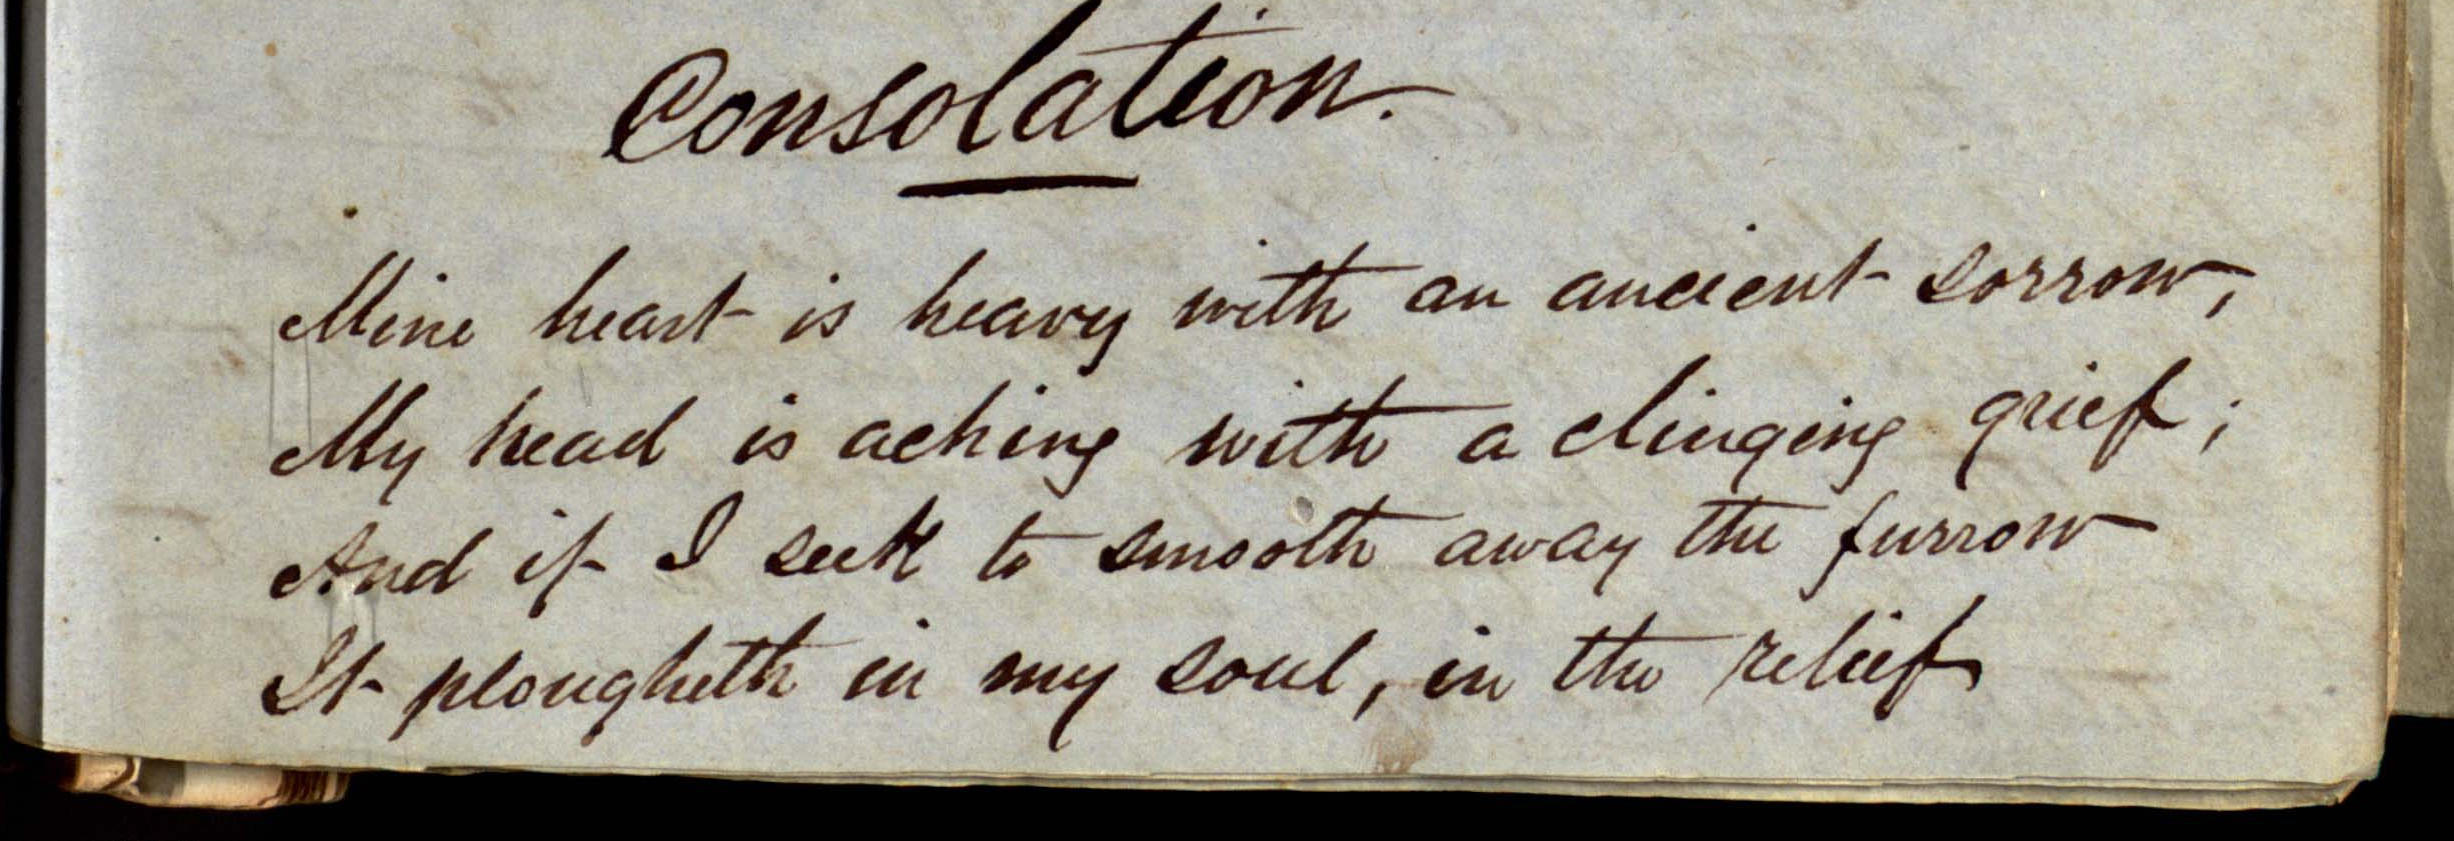 Consolation.
Mine heart is heavy with an ancient sorrow,
My head is aching with a clinging grief;
And if I seek to smooth away the furrow
It plougheth in my soul, in the relief